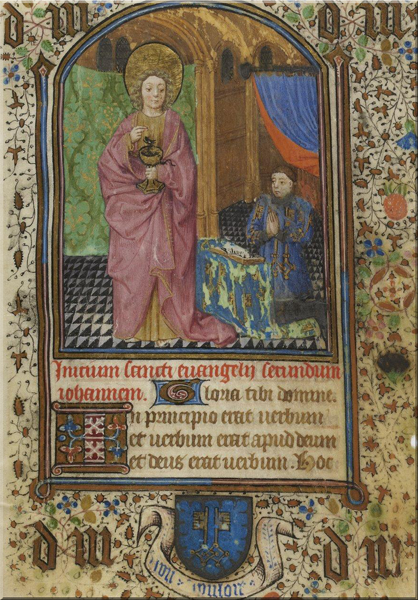 d m d m
Inicium sancti euangelij secundum
iohannem. Gloria tibi domine.
In principio erat uerbum
et uerbum erat apud deum
et deus erat uerbum. Hoc
d m d m